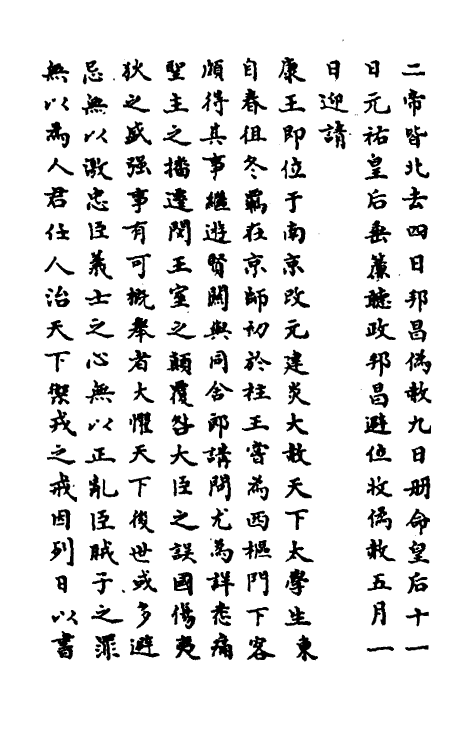 二帝皆北去四日邦昌偽赦九日册命皇后十一
日元祐皇后垂簾聽政邦昌避位收偽赦五月一
日迎請
康王即位于南京改元建炎大赦天下太學生東
自春徂冬羈在京師初於柱王㝢為西樞門下客
頗得其事繼遊賢關與同舍郎講問尤為詳悉痛
聖主之播遷閔王室之顛覆咎大臣之誤國傷夷
狄之盛强事有可概舉者大懼天下後世或多避
忌無以激忠臣義士之心無以正亂臣賊子之罪
無以為人君任人治天下禦戎之戒因列日以書